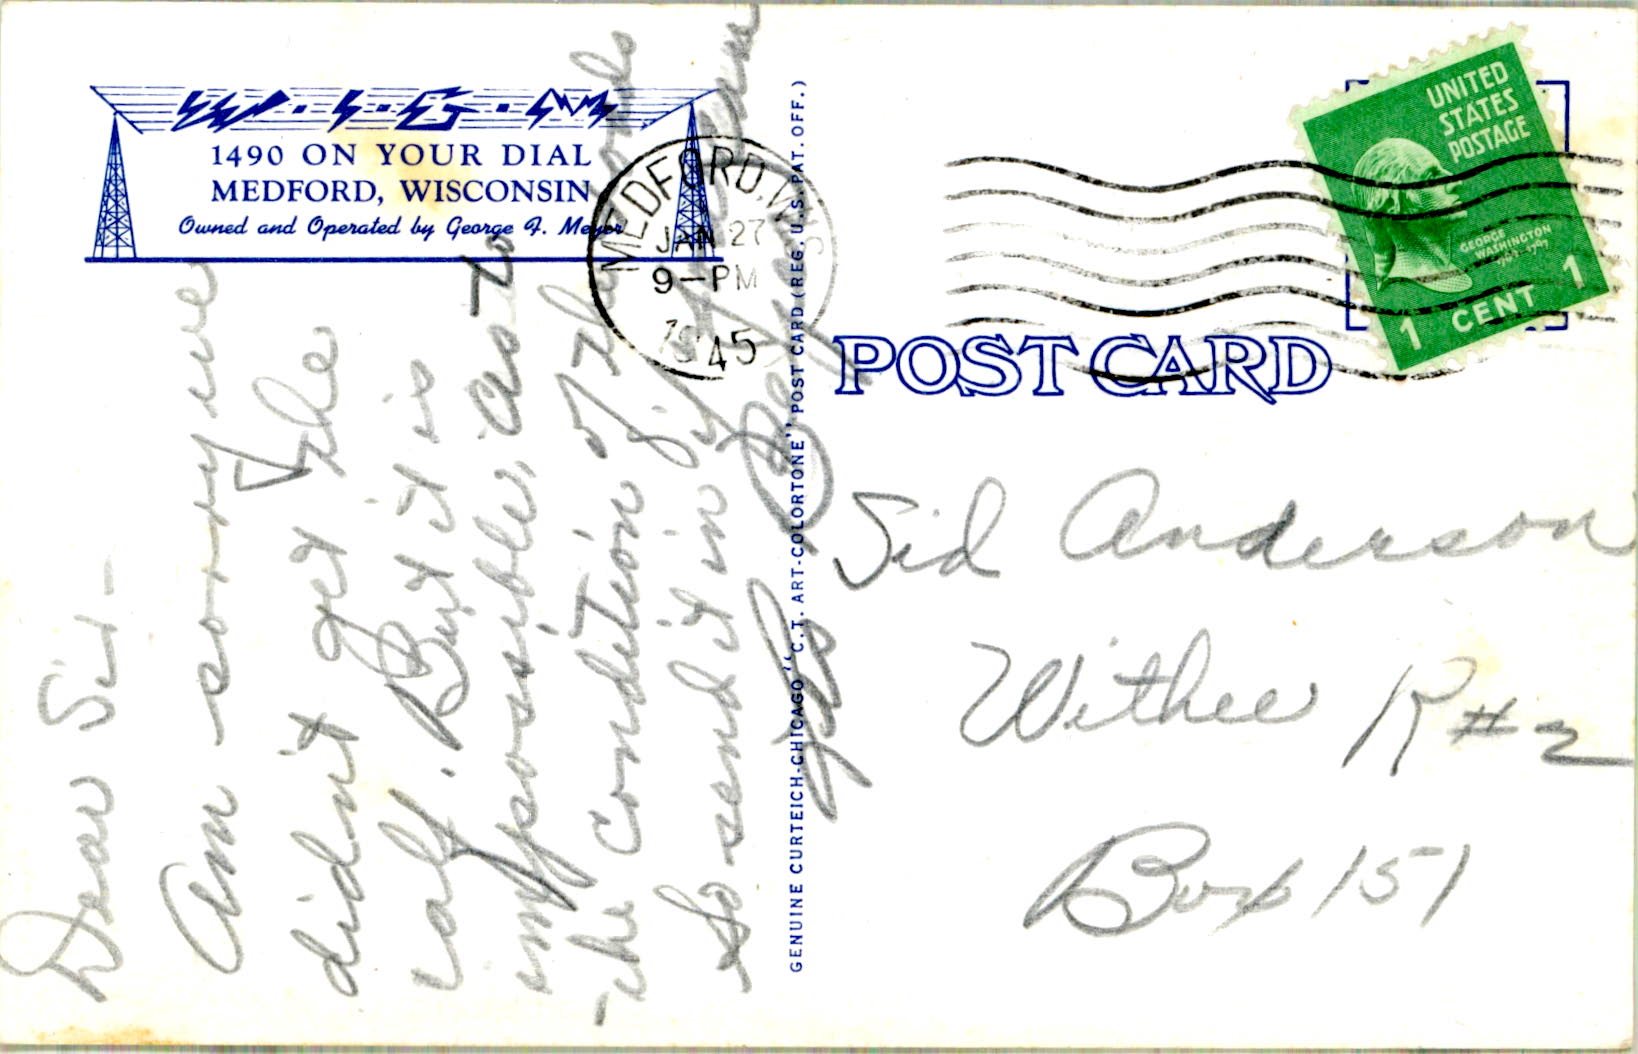 W·I·G·M
1490 ON YOUR DIAL
MEDFORD, WISCONSIN
Owned and Operated by George F. Meyer
MEDFORD, WIS
JAN 27
9-PM
1945
UNITED
STATES
POSTAGE
GEORGE
WASHINGTON
1789-1797
1 CENT 1
POST CARD
GENUINE CURTEICH-CHICAGO "C.T. ART-COLORTONE" POST CARD (REG. U.S. PAT. OFF.)
Dear Sir-
Am sorry we
didn't get the
calf. But it is
impossible, as to
the condition of the roads
So send it in if you can
Sid Anderson
Withee R#2
Box 151